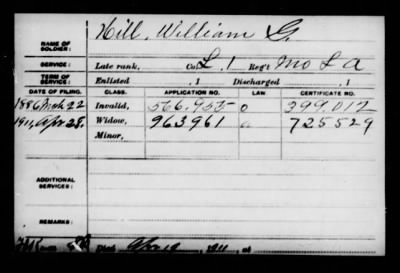 Hill, William G.
NAME OF SOLDIER:
SERVICE: Late rank, Co. L, 1 Reg't Mo L A
TERM OF SERVICE: Enlisted , 1 Discharged , 1
DATE OF FILING. CLASS. APPLICATION NO. LAW. CERTIFICATE NO.
1886 Mch 22 Invalid, 566.955 399.012
1911, Apr 28. Widow, 963.961 725529
Minor,
ADDITIONAL SERVICES:
REMARKS:
Died Apr 19, 1911, at